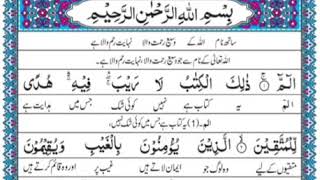 بِسْمِ اللّٰهِ الرَّحْمٰنِ الرَّحِيْمِ
ساتھ نام اللہ کے وسیع رحمت والا نہایت رحم والا ہے
اللہ تعالیٰ کے نام سے جو وسیع رحمت والا، نہایت رحم والا ہے
الٓمّٓ ۚ ذٰلِكَ الْكِتٰبُ لَا رَيْبَ ۛ فِيْهِ ۛ هُدًى
الم یہ کتاب ہے نہیں کوئی شک جس میں ہدایت ہے
الم، (1) یہ کتاب ہے جس میں کوئی شک نہیں،
لِّلْمُتَّقِيْنَ ۙ الَّذِيْنَ يُؤْمِنُوْنَ بِالْغَيْبِ وَيُقِيْمُوْنَ
متقیوں کے لیے وہ لوگ جو ایمان لاتے ہیں غیب پر اور وہ قائم کرتے ہیں